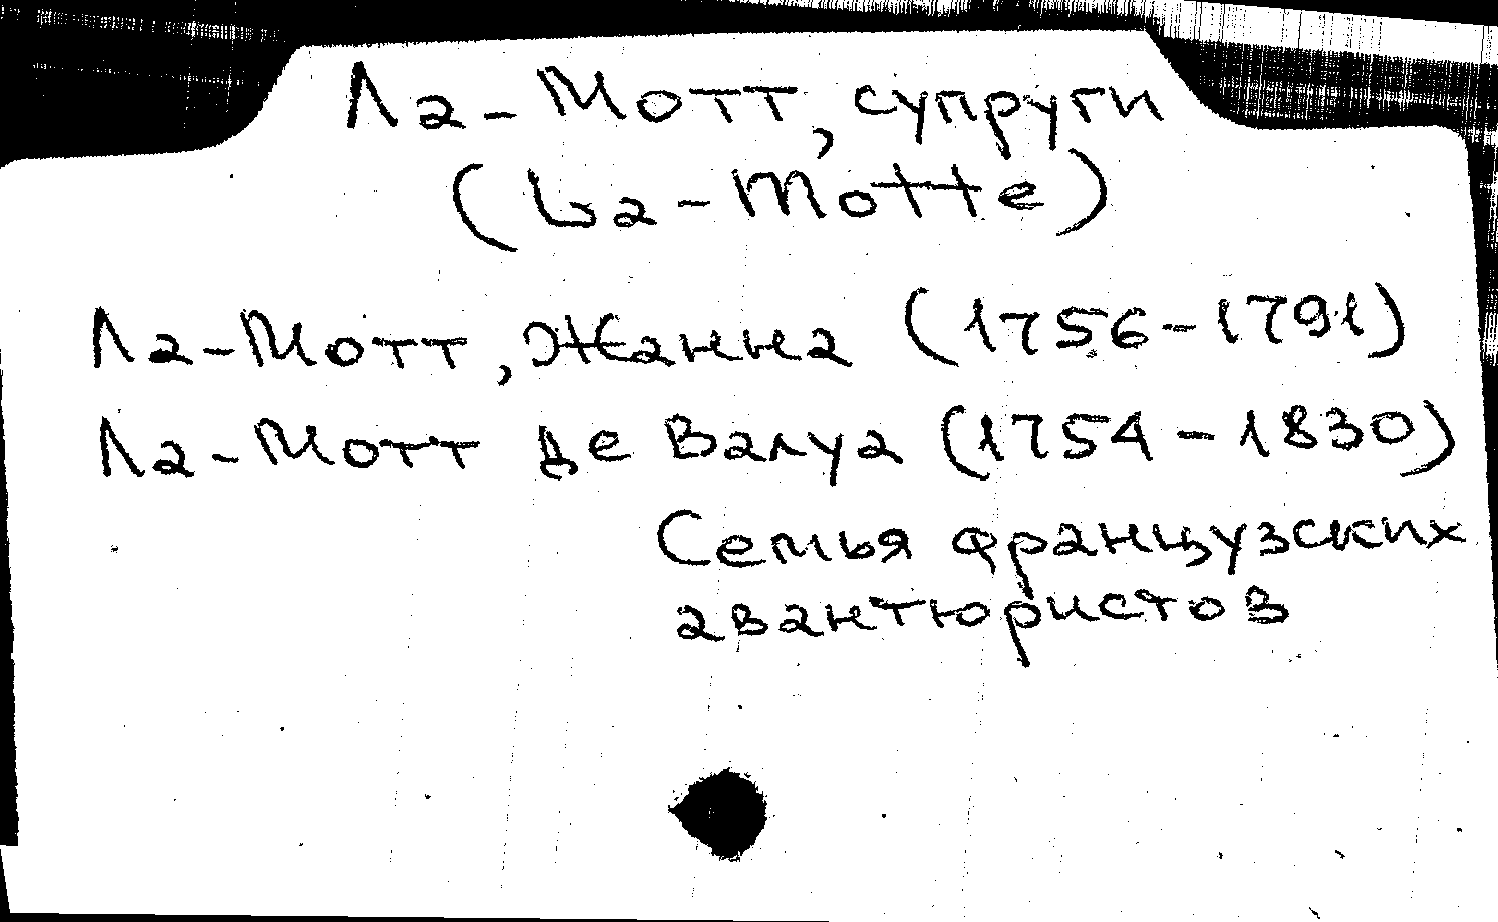 Ла-Мотт, супруги
(La-Motte)
Ла-Мотт, Жанна (1756-1791)
Ла-Мотт де Валуа (1754-1830)
Семья французских
авантюристов